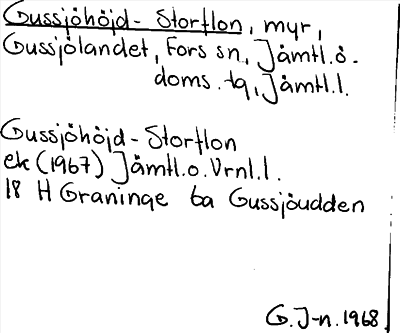 Gussjöhöjd-Storflon, myr,
Gussjölandet, Fors sn., Jämtl.ö.
doms.tg, Jämtl.l.
Gussjöhöjd-Storflon
ek (1967) Jämtl.o.Vrnl.l.
18 H Graninge 6a Gussjöudden
G.J-n.1968